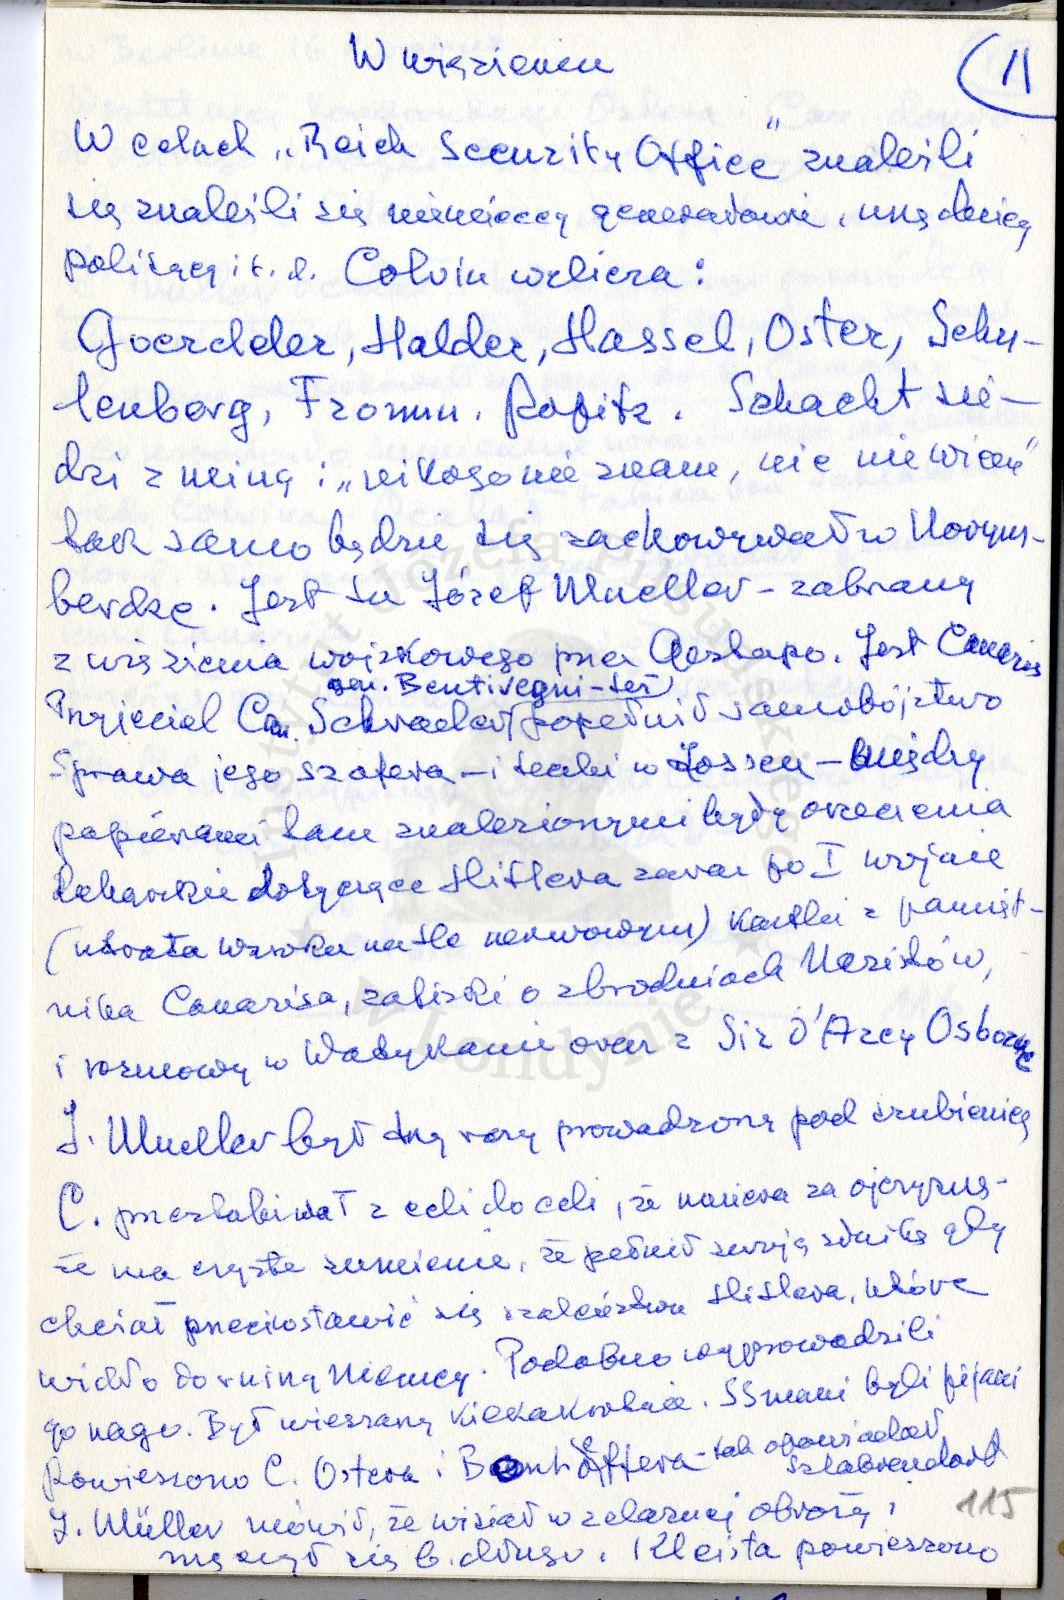 W więzieniu
11
W celach „Reich Security Office” znaleźli
się znaleźli się niemieccy generałowie, urzędnicy
politycy i t. d. Colvin wylicza:
Goerdeler, Halder, Hassel, Oster, Schu-
lenborg, Fromm. Popitz. Schacht sie-
dzi z miną: „nikogo nie znam, nic nie wiem”
tak samo będzie się zachowywał w Norym-
berdze. Jest tu Józef Mueller - zabrany
z więzienia wojskowego przez Gestapo. Jest Canaris
gen. Bentivegni - też
Przyjaciel Can. Schrader popełnił samobójstwo
Sprawa jego szofera - i teczki w Zossen - między
papierami tam znalezionymi były orzeczenia
lekarskie dotyczące Hitlera zaraz po I wojnie
(utrata wzroku na tle nerwowym) Kartki z pamięt-
nika Canarisa, zapiski o zbrodniach Nazistów,
i rozmowy w Watykanie oraz z Sir d'Arcy Osborne
J. Mueller był trzy razy prowadzony pod szubienicę
C. przestukiwał z celi do celi, że umiera za ojczyznę -
że ma czyste sumienie, że pełnił swoją służbę gdy
chciał przeciwstawić się szaleństwu Hitlera, które
wiodło do ruiny Niemcy. Podobno wyprowadzili
go nago. Był wieszany kilkakrotnie. SSmani byli pijani
Powieszono C. Ostera i Bonhöffera - tak opowiadał
Szlabrendorf
J. Müller mówił, że wisiał w żelaznej obroży i
męczył się b. długo. Kleista powieszono
115
Instytut Józefa Piłsudskiego
w Londynie